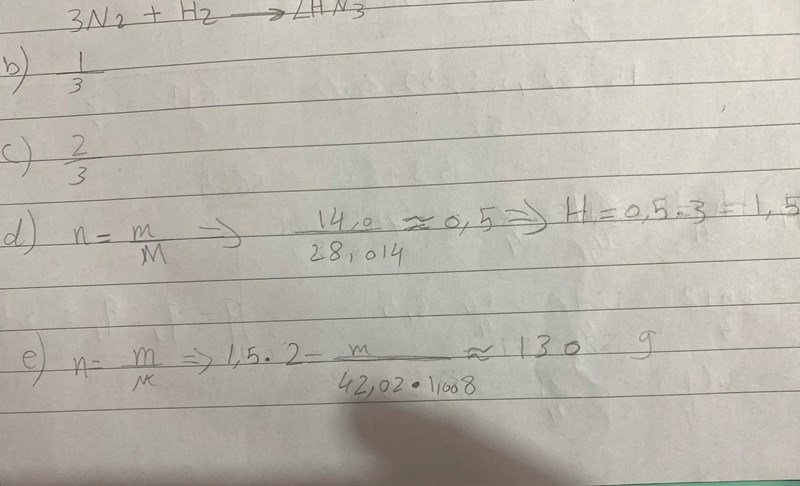 3N2 + H2 → 2HN3
b) 1/3
c) 2/3
d) n = m/M ⇒ 14,0/28,014 ≈ 0,5 ⇒ H = 0,5·3 = 1,5
e) n = m/M ⇒ 1,5·2 = m/42,02·1,008 ≈ 130 g